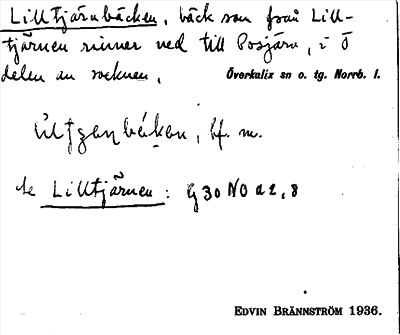 Lilltjärnbäcken, bäck som från Lill-
tjärnen rinner ned till Posjärn, i Ö
delen av socknen.
Överkalix sn o. tg. Norrb. l.
bf. m.
se Lilltjärnen: G 30 NO a 2, 8
EDVIN BRÄNNSTRÖM 1936.